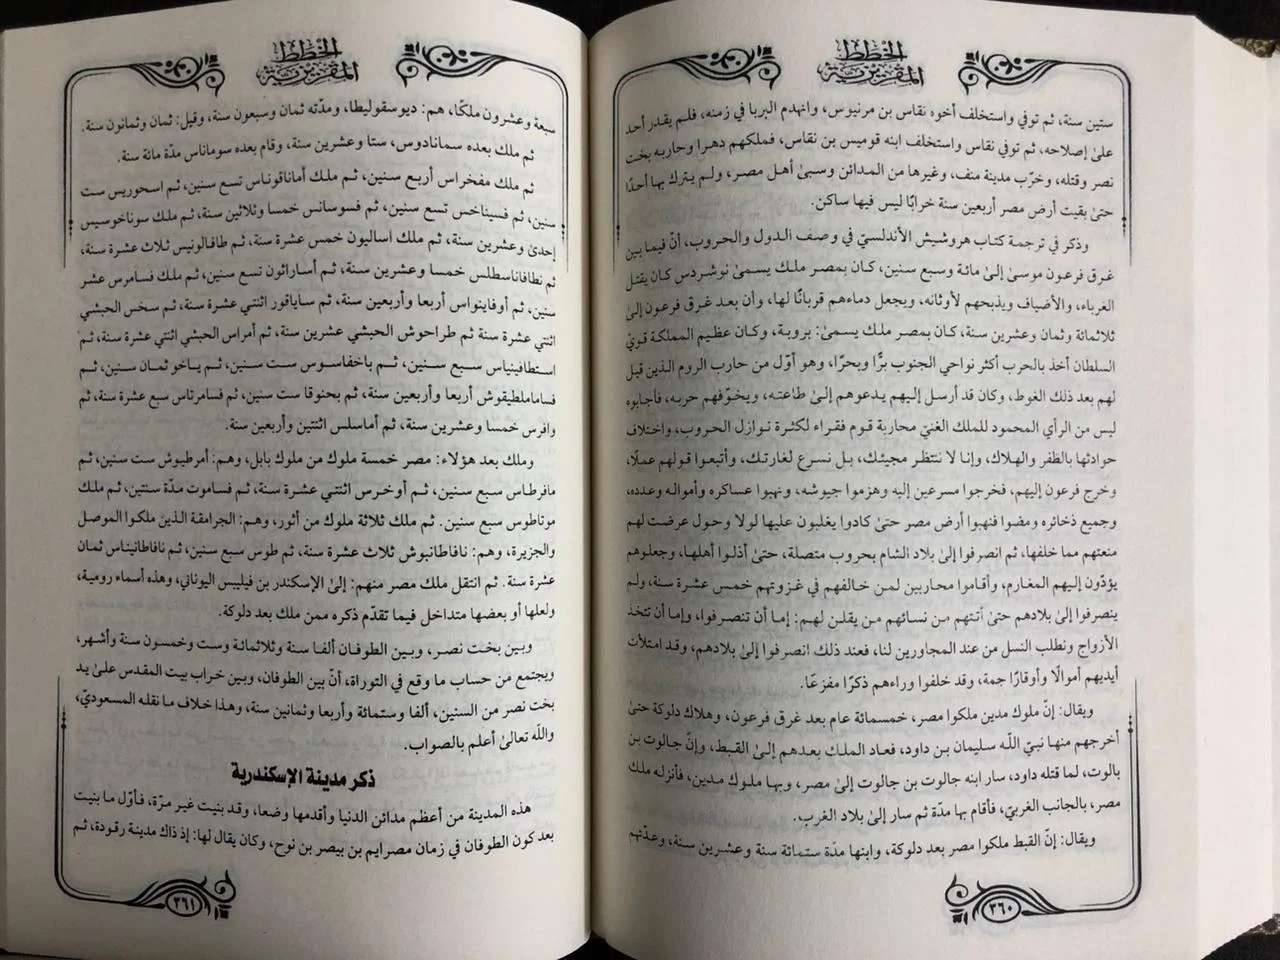 الخطط
المقريزية
ستين سنة، ثم توفي واستخلف أخوه نقاس بن مرنيوس، وانهدم البربا في زمنه، فلم يقدر أحد
علىٰ إصلاحه، ثم توفي نقاس واستخلف ابنه قوميس بن نقاس، فملكهم دهرا وحاربه بخت
نصر وقتله، وخرّب مدينة منف، وغيرها من المدائن وسبىٰ أهل مصر، ولم يترك بها أحدًا
حتىٰ بقيت أرض مصر أربعين سنة خرابًا ليس فيها ساكن.
وذكر في ترجمة كتاب هروشيش الأندلسيّ في وصف الدول والحروب، أنّ فيما بين
غرق فرعون موسىٰ إلىٰ مائة وسبع سنين، كان بمصر ملك يسمىٰ نوشردس كان يقتل
الغرباء، والأضياف ويذبحهم لأوثانه، ويجعل دماءهم قربانًا لها، وأن بعد غرق فرعون إلىٰ
ثلاثمائة وثمان وعشرين سنة، كان بمصر ملك يسمىٰ: بروبة، وكان عظيم المملكة قويّ
السلطان أخذ بالحرب أكثر نواحي الجنوب برًّا وبحرًا، وهو أوّل من حارب الروم الذين قيل
لهم بعد ذلك الغوط، وكان قد أرسل إليهم يدعوهم إلىٰ طاعته، ويخوّفهم حربه، فأجابوه
ليس من الرأي المحمود للملك الغنيّ محاربة قوم فقراء لكثرة نوازل الحروب، واختلاف
حوادثها بالظفر والهلاك، وإنا لا ننتظر مجيئك، بل نسرع لغارتك، وأتبعوا قولهم عملًا،
وخرج فرعون إليهم، فخرجوا مسرعين إليه وهزموا جيوشه، ونهبوا عساكره وأمواله وعدده،
وجميع ذخائره ومضوا فنهبوا أرض مصر حتىٰ كادوا يغلبون عليها لولا وحول عرضت لهم
منعتهم مما خلفها، ثم انصرفوا إلىٰ بلاد الشام بحروب متصلة، حتىٰ أذلوا أهلها، وجعلوهم
يؤدّون إليهم المغارم، وأقاموا محاربين لمن خالفهم في غزوتهم خمس عشرة سنة، ولم
ينصرفوا إلىٰ بلادهم حتىٰ أتتهم من نسائهم من يقلن لهم: إما أن تنصرفوا، وإما أن نتخذ
الأزواج ونطلب النسل من عند المجاورين لنا، فعند ذلك انصرفوا إلىٰ بلادهم، وقد امتلأت
أيديهم أموالًا وأوقارًا جمة، وقد خلفوا وراءهم ذكرًا مفزعًا.
ويقال: إنّ ملوك مدين ملكوا مصر، خمسمائة عام بعد غرق فرعون، وهلاك دلوكة حتىٰ
أخرجهم منها نبيّ اللّه سليمان بن داود، فعاد الملك بعدهم إلىٰ القبط، وإنّ جالوت بن
بالوت، لما قتله داود، سار ابنه جالوت بن جالوت إلىٰ مصر، وبها ملوك مدين، فأنزله ملك
مصر، بالجانب الغربيّ، فأقام بها مدّة ثم سار إلىٰ بلاد الغرب.
ويقال: إنّ القبط ملكوا مصر بعد دلوكة، وابنها مدّة ستمائة سنة وعشرين سنة، وعدّتهم
٣٦٠
الخطط
المقريزية
سبعة وعشرون ملكًا، هم: ديوسقوليطا، ومدّته ثمان وسبعون سنة، وقيل: ثمان وثمانون سنة.
ثم ملك بعده سمانادوس، ستا وعشرين سنة، وقام بعده سوماناس مدّة مائة سنة.
ثم ملك مفخراس أربع سنين، ثم ملك أماناقوناس تسع سنين، ثم اسحوريس ست
سنين، ثم فسيناخس تسع سنين، ثم فسوسانس خمسا وثلاثين سنة، ثم ملك سوناخوسيس
إحدىٰ وعشرين سنة، ثم ملك اساليون خمس عشرة سنة، ثم طافالونيس ثلاث عشرة سنة،
ثم نطافاناسطلس خمسا وعشرين سنة، ثم أسارائون تسع سنين، ثم ملك فسامرس عشر
سنين، ثم أوفاينواس أربعا وأربعين سنة، ثم ساياقور اثنتي عشرة سنة، ثم سخس الحبشي
اثنتي عشرة سنة ثم طراحوش الحبشي عشرين سنة، ثم أمراس الحبشي اثنتي عشرة سنة، ثم
استطافينياس سبع سنين، ثم باخفاسوس ست سنين، ثم ياخو ثمان سنين، ثم
فساماملطيقوش أربعا وأربعين سنة، ثم بحنوقا ست سنين، ثم فسامرتاس سبع عشرة سنة، ثم
وافرس خمسا وعشرين سنة، ثم أماسلس اثنتين وأربعين سنة.
وملك بعد هؤلاء: مصر خمسة ملوك من ملوك بابل، وهم: أمرطيوش ست سنين، ثم
مافرطاس سبع سنين، ثم أوخرس اثنتي عشرة سنة، ثم فساموت مدّة سنتين، ثم ملك
موتاطوس سبع سنين. ثم ملك ثلاثة ملوك من أثور، وهم: الجرامقة الذين ملكوا الموصل
والجزيرة، وهم: نافاطانبوش ثلاث عشرة سنة، ثم طوس سبع سنين، ثم نافاطانيناس ثمان
عشرة سنة. ثم انتقل ملك مصر منهم: إلىٰ الإسكندر بن فيليبس اليوناني، وهذه أسماء رومية،
ولعلها أو بعضها متداخل فيما تقدّم ذكره ممن ملك بعد دلوكة.
وبين بخت نصر، وبين الطوفان ألفا سنة وثلاثمائة وست وخمسون سنة وأشهر،
ويجتمع من حساب ما وقع في التوراة، أنّ بين الطوفان، وبين خراب بيت المقدس علىٰ يد
بخت نصر من السنين، ألفا وستمائة وأربعا وثمانين سنة، وهذا خلاف ما نقله المسعوديّ،
واللّه تعالىٰ أعلم بالصواب.
ذكر مدينة الإسكندرية
هذه المدينة من أعظم مدائن الدنيا وأقدمها وضعا، وقد بنيت غير مرّة، فأوّل ما بنيت
بعد كون الطوفان في زمان مصرايم بن بيصر بن نوح، وكان يقال لها: إذ ذاك مدينة رقودة، ثم
٣٦١